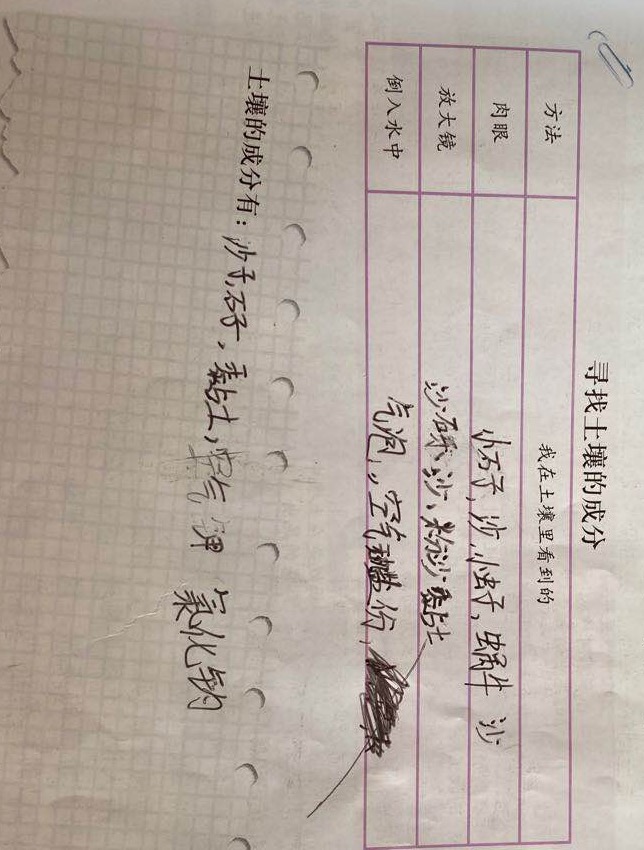 寻找土壤的成分
方法 我在土壤里看到的
肉眼 小石子,沙,小虫子,蜗牛 沙
放大镜 沙砾、沙、粉沙黏土
倒入水中 气泡,空气和盐份,
土壤的成分有:沙子,石子,黏土,空气 钾 氯化钠